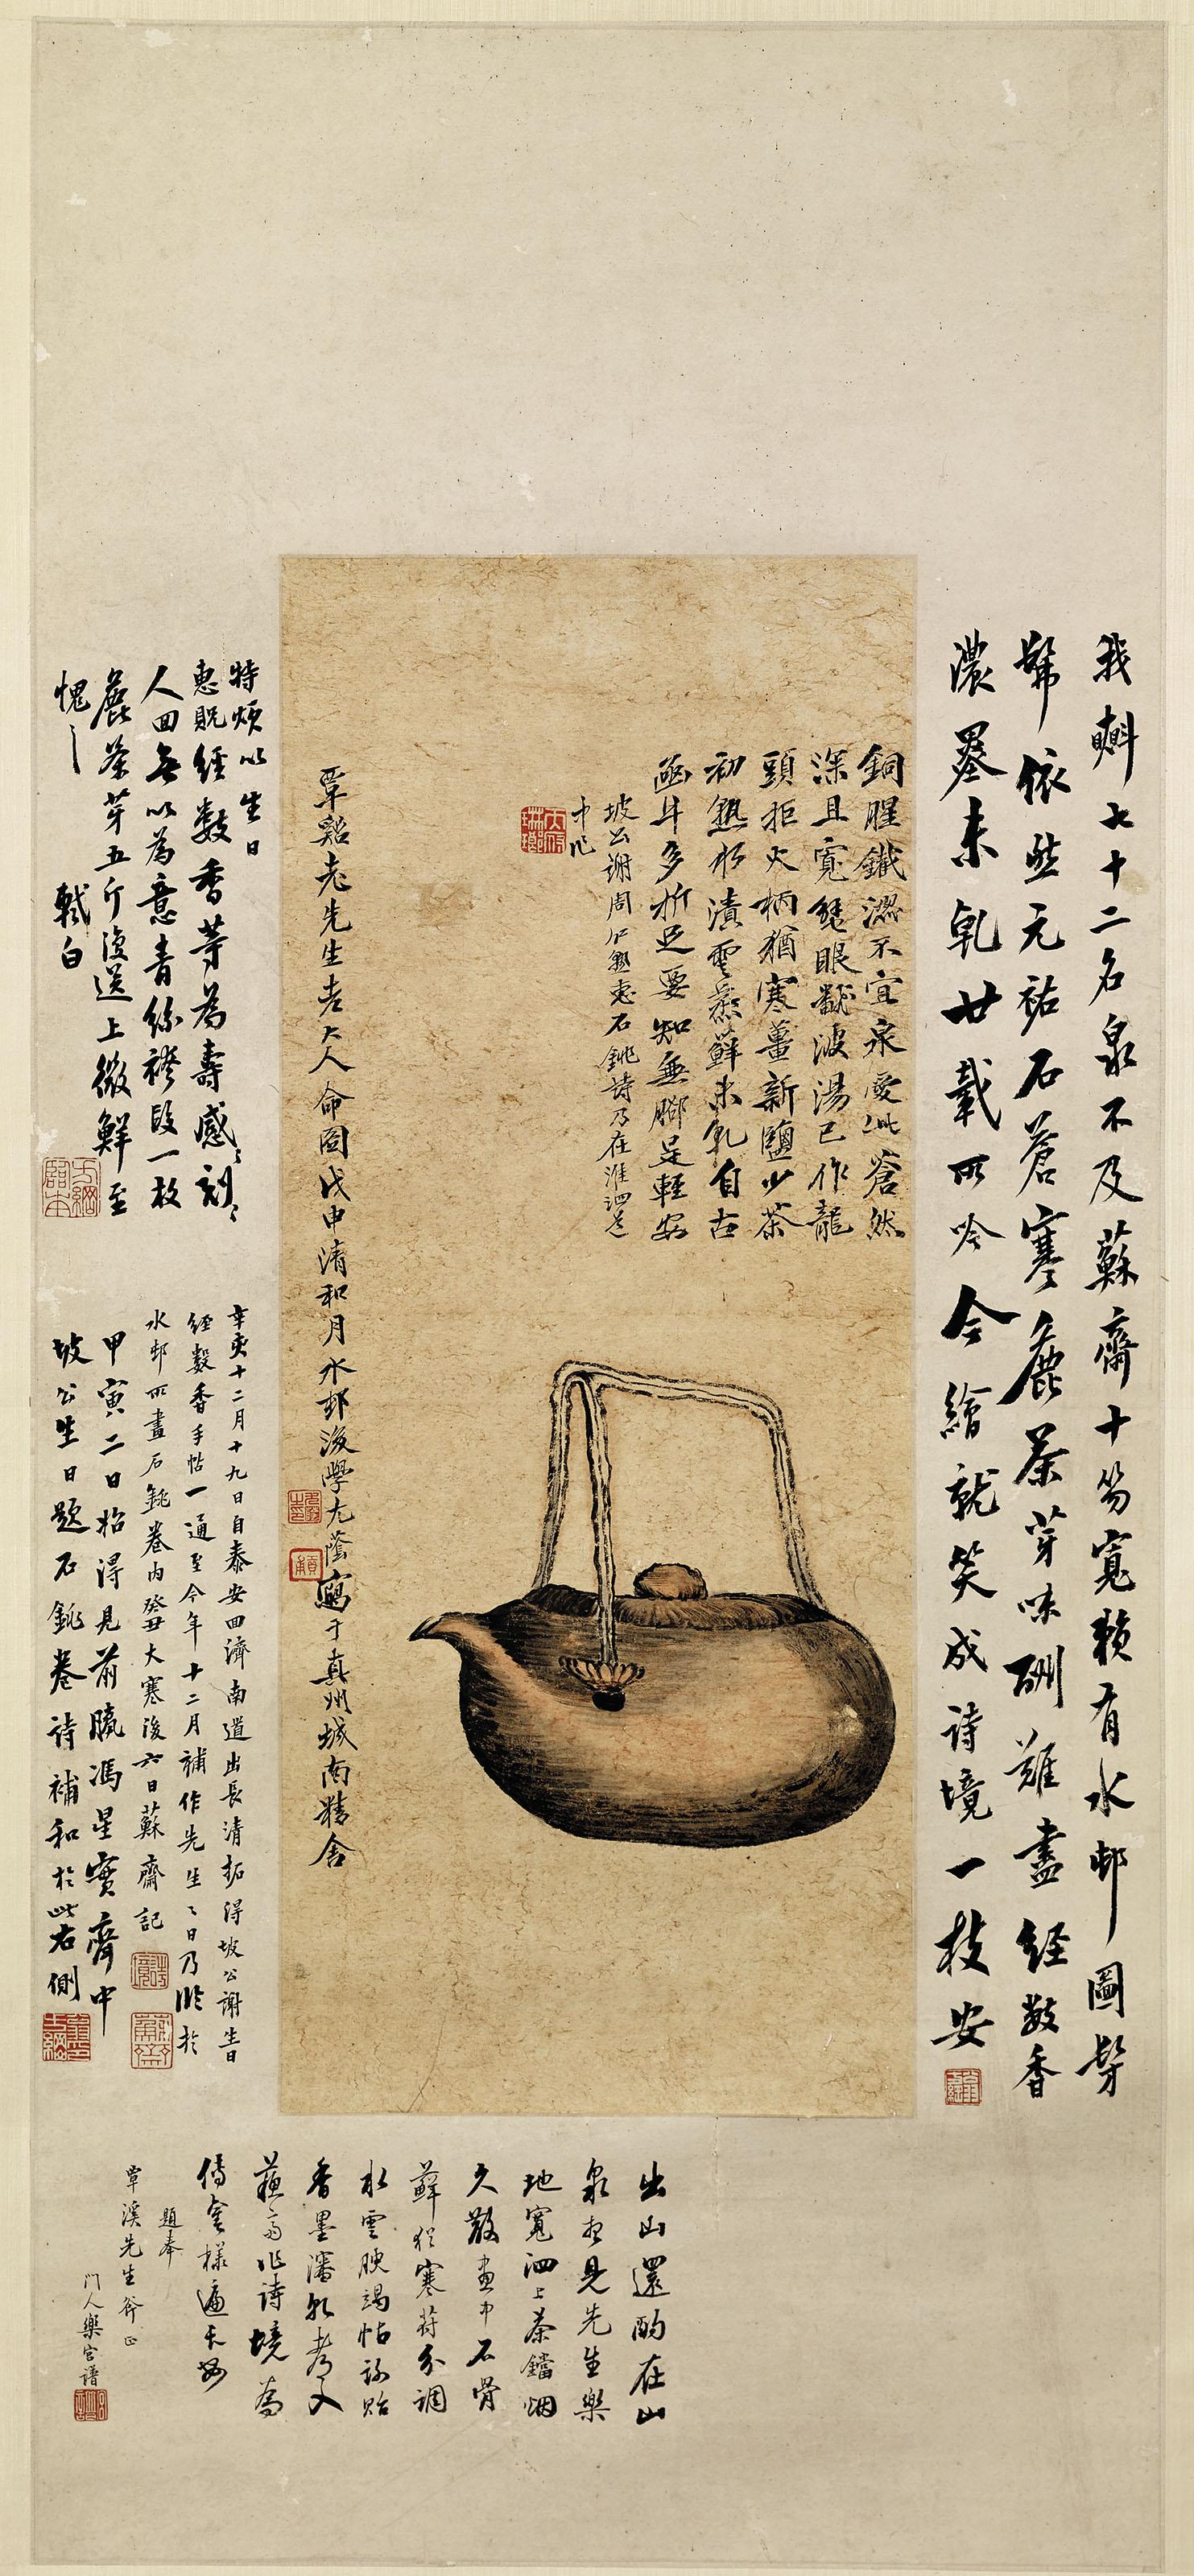 我㪺七十二名泉不及蘇齋十笏寬賴有水邨圖髣
髴依然元祐石蒼寒麁茶芽味酬難盡經數香
濃墨未乾廿載所吟今繪就笑成詩境一枝安
銅腥鐵澀不宜泉愛此蒼然
深且寬蟹眼翻波湯已作龍
頭拒火柄猶寒薑新鹽少茶
初熟水漬雲蒸蘚未乾自古
函牛多折足要知無腳是輕安
坡公謝周仁熟惠石銚詩乃在淮泗道
中作
覃谿老先生老大人命圖戊申清和月水邨後學尤蔭寫于真州城南精舍
特煩以生日
惠貺經數香等為壽感感刻刻
人回無以為意青絲襻段一枚
麁茶芽五斤復送上微鮮至
愧愧 軾白
辛亥十二月十九日自泰安回濟南道出長清拓得坡公謝生日
經數香手帖一通至今年十二月補作先生生日乃臨於
水邨所畫石銚卷內癸丑大寒後六日蘇齋記
甲寅二日始得見前賸馮星實齋中
坡公生日題石銚卷詩補和於此右側
出山還酌在山
泉如見先生樂
地寬泗上茶鐺烟
久散畫中石骨
蘚猶寒蒋分調
水雲腴竭帖詠貽
香墨瀋乾考文
蘇齋作詩境為
傳盒樣遍長安
題奉
覃溪先生斧正
門人樂宮譜